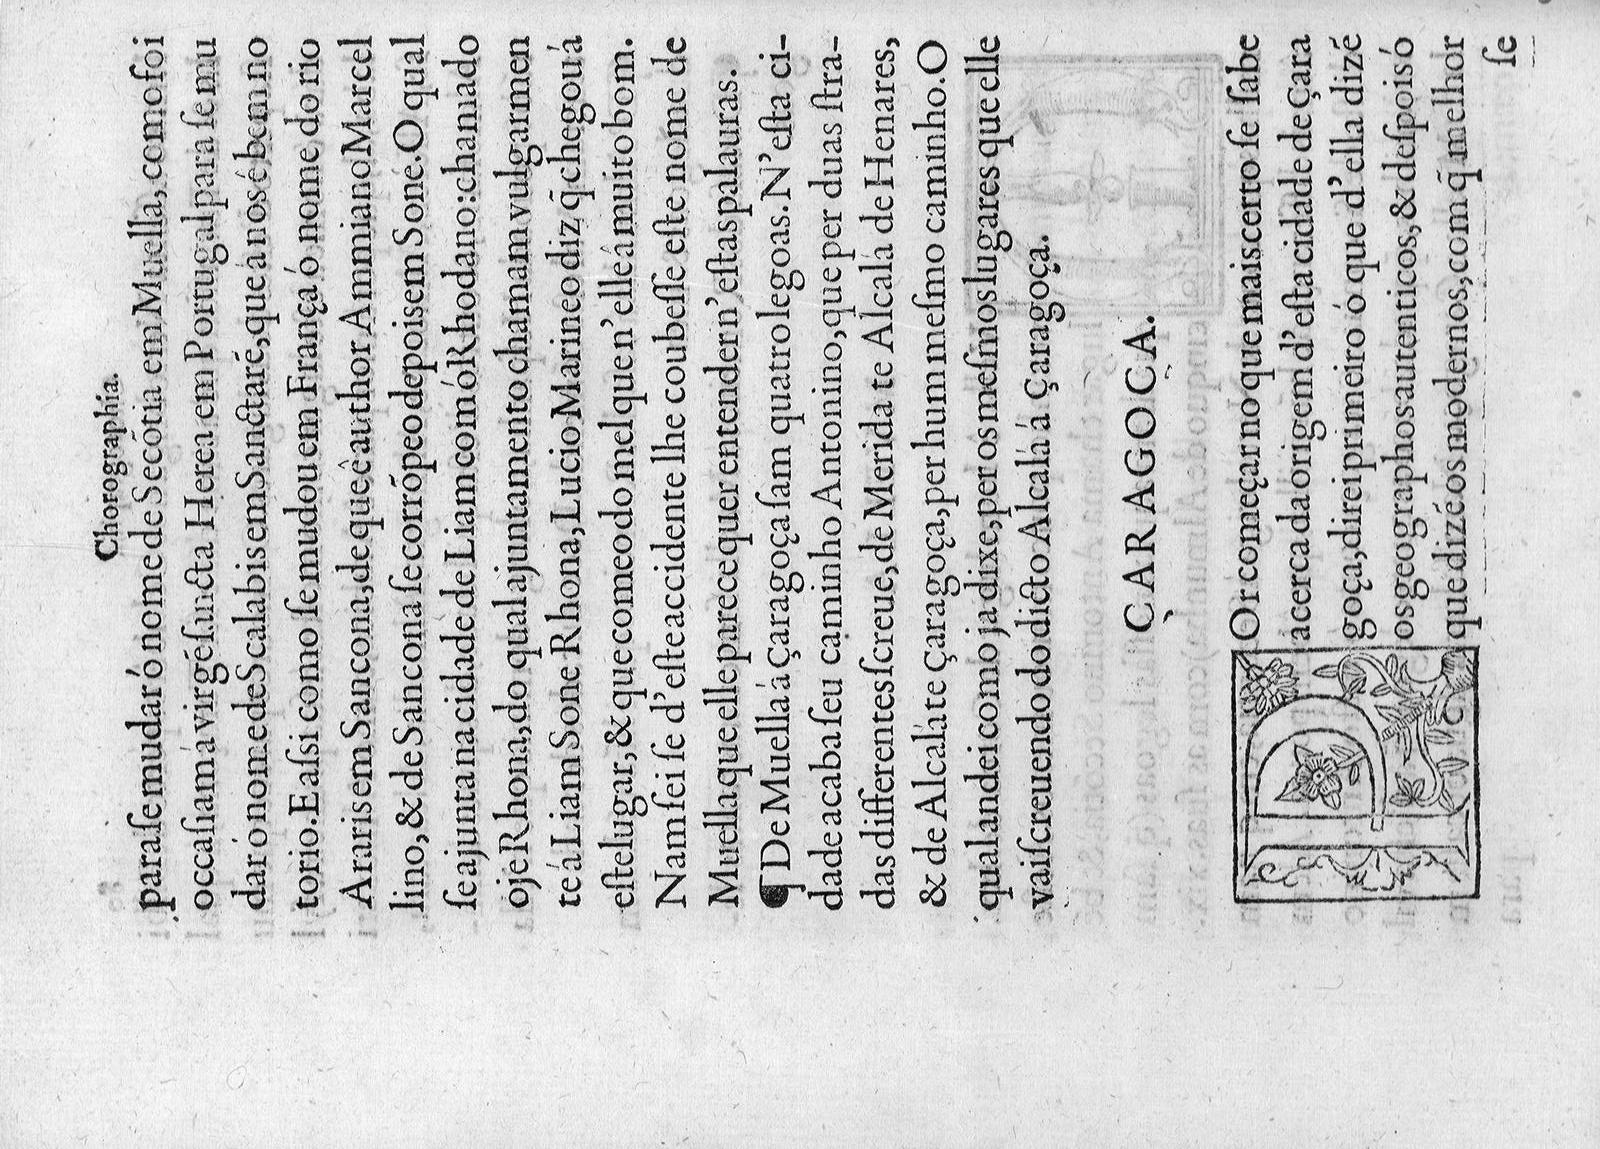 Chorographia.
para ſe mudar ó nome de Secõtia em Muella, como foi
occaſiam á virgẽ ſancta Herea em Portugal para ſe mu
dar ó nome de Scalabis em Sanctarẽ, que á nos é bem no
torio. E aſsi como ſe mudou em França ó nome do rio
Araris em Sancona, de que ê author Ammiano Marcel
lino, & de Sancona ſe corrõpeo depois em Sone. O qual
ſe ajunta na cidade de Liam com ó Rhodano: chamado
oje Rhona, do qual ajuntamento chamam vulgarmen
te á Liam Sone Rhona, Lucio Marineo diz q̃ chegou á
eſte lugar, & que comeo do mel que n'elle á muito bom.
Nam ſei ſe d'eſte accidente lhe coubeſſe eſte nome de
Muella que elle parece quer entender n'eſtas palauras.
¶ De Muella á Çaragoça ſam quatro legoas. N'eſta ci-
dade acaba ſeu caminho Antonino, que per duas ſtra-
das differentes ſcreue, de Merida te Alcalá de Henares,
& de Alcalá te Çaragoça, per hum meſmo caminho. O
qual andei como ja dixe, per os meſmos lugares que elle
vai ſcreuendo do dicto Alcalá á Çaragoça.
ÇARAGOÇA.
POr começar no que mais certo ſe ſabe
acerca da origem d'eſta cidade de Çara
goça, direi primeiro ó que d'ella dizẽ
os geographos autenticos, & deſpois ó
que dizẽ os modernos, com q̃ melhor
ſe